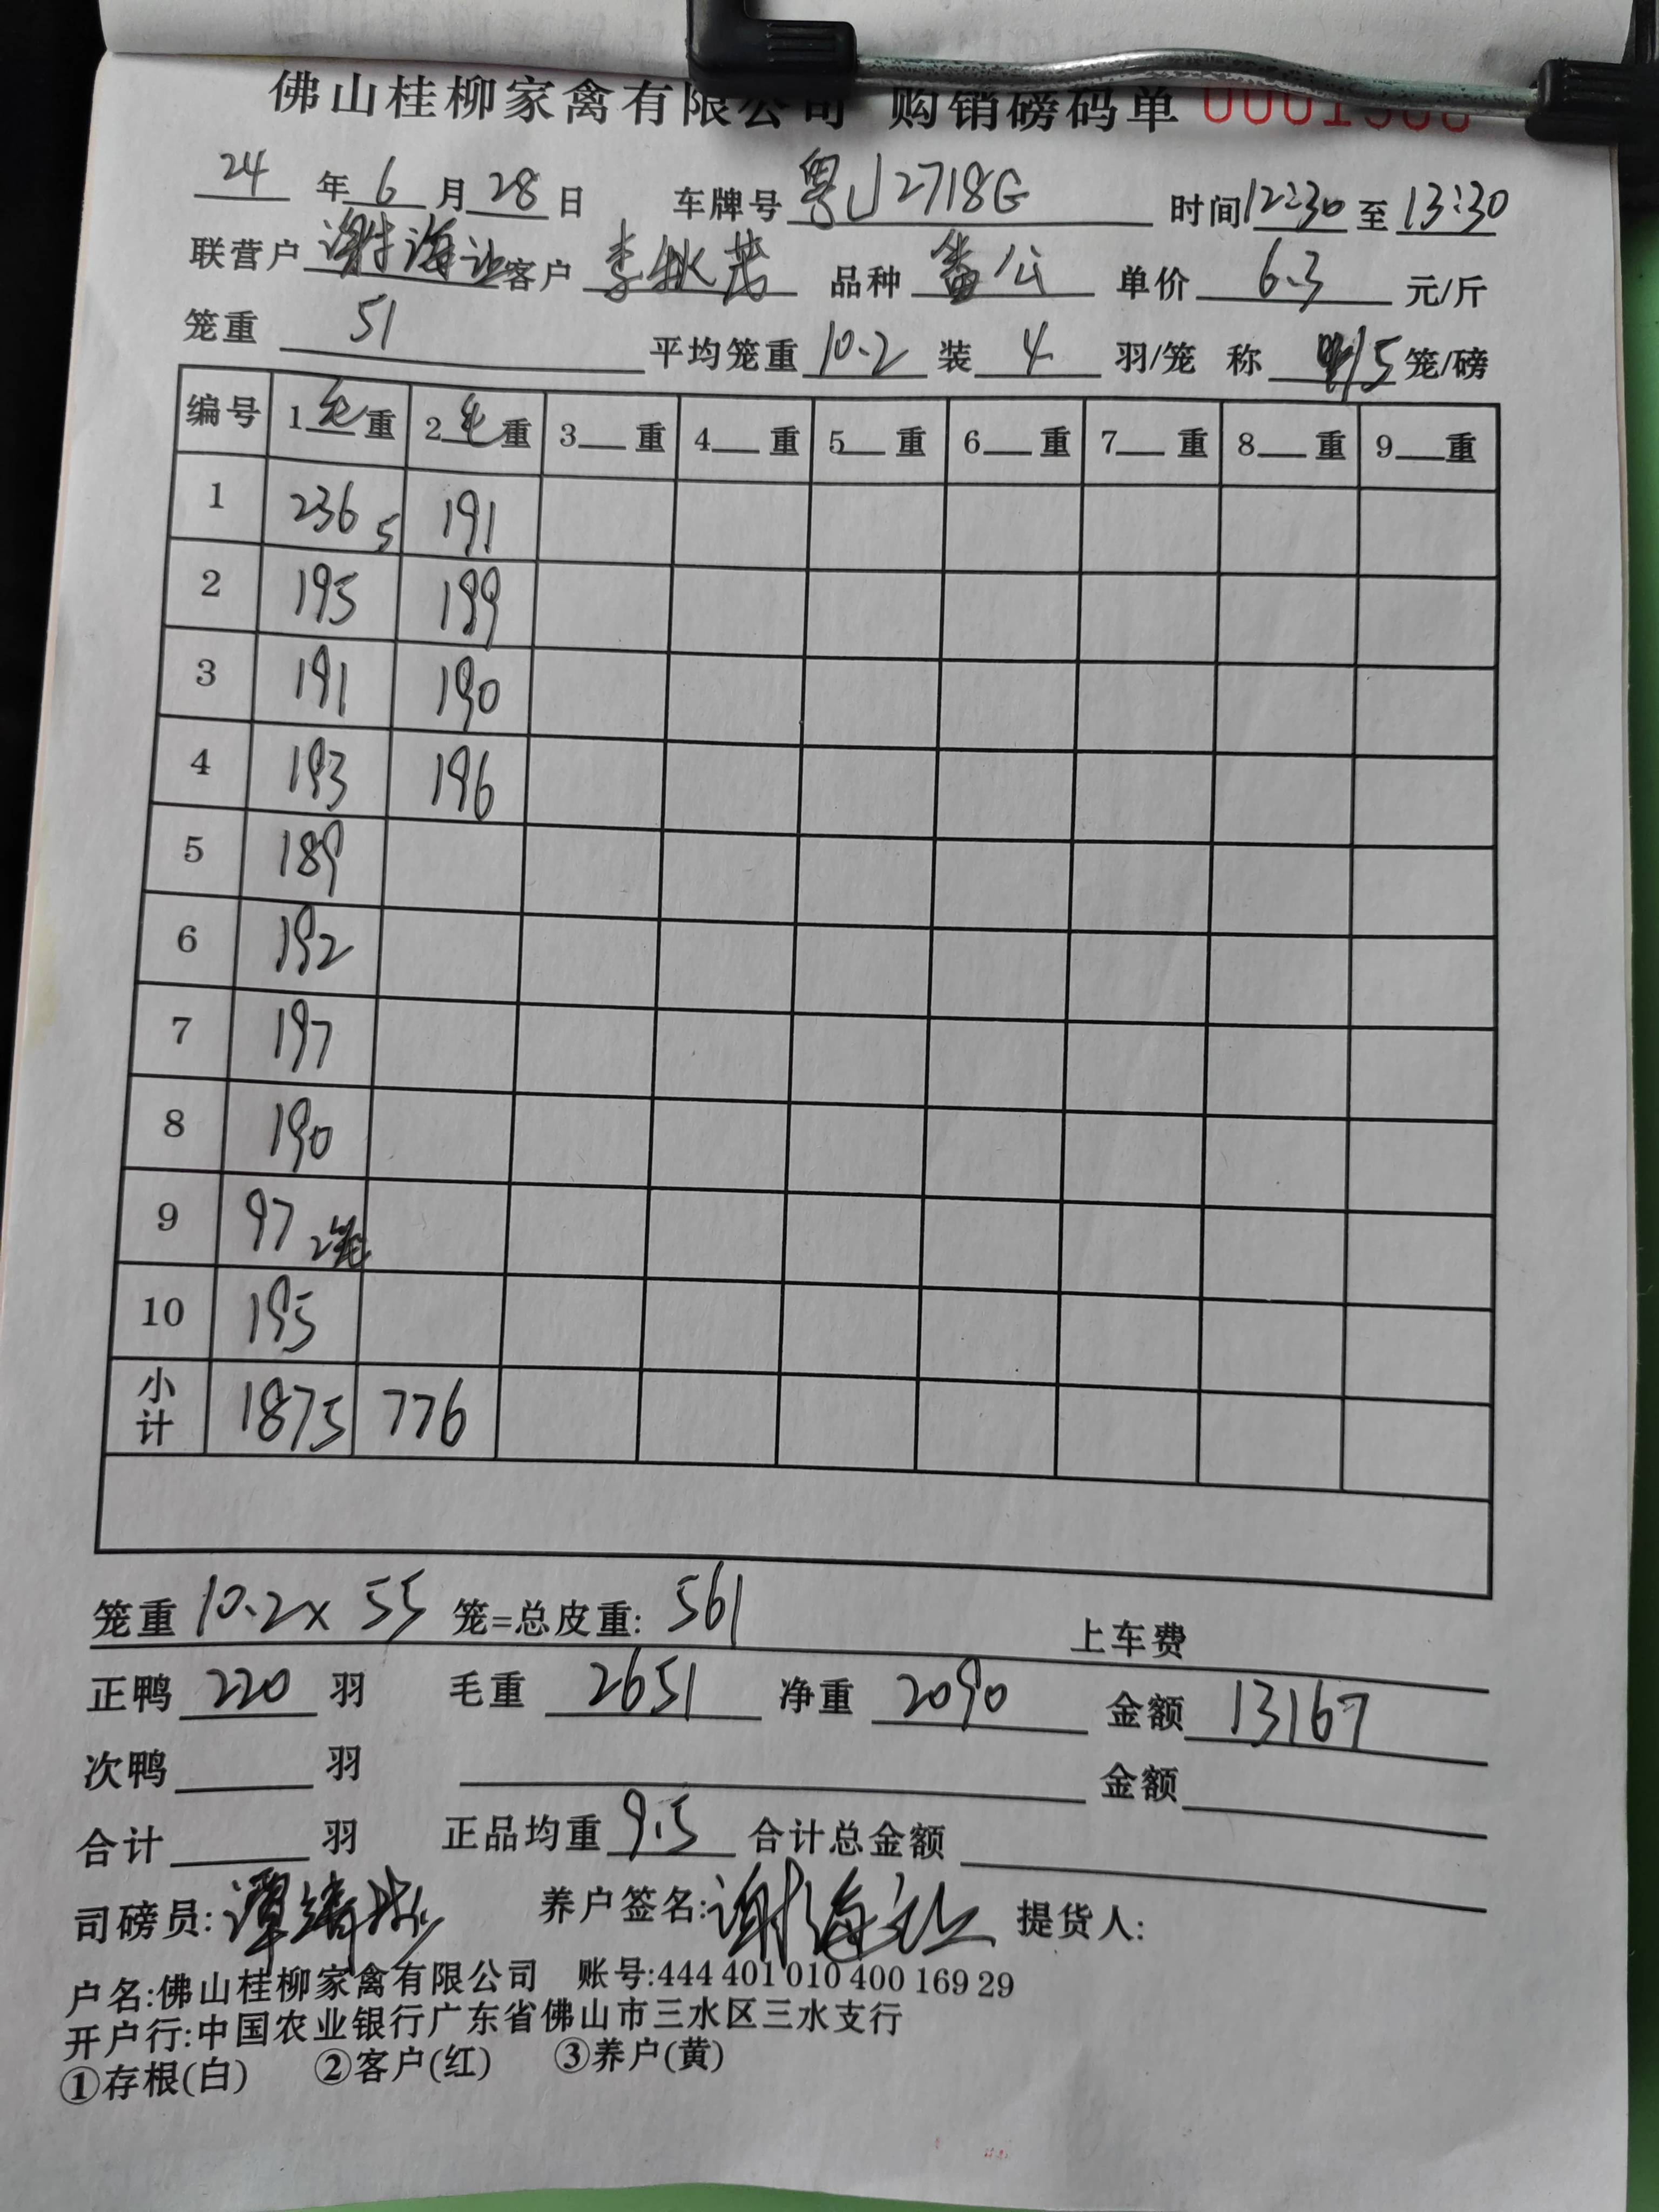 佛山桂柳家禽有限公司 购销磅码单
24 年 6 月 28 日 车牌号 粤J2718G 时间 12:30 至 13:30
联营户 谢海 客户 李秋 品种 番公 单价 6.3 元/斤
笼重 51 平均笼重 10.2 装 4 羽/笼 称 5 笼/磅
编号 1 毛 重 2 毛 重 3 重 4 重 5 重 6 重 7 重 8 重 9 重
1 236 5 191
2 195 199
3 191 190
4 193 196
5 189
6 192
7 197
8 190
9 97 2笼
10 195
小计 1875 776
笼重 10.2 x 55 笼=总皮重: 561 上车费
正鸭 220 羽 毛重 2651 净重 2090 金额 13167
次鸭 羽 金额
合计 羽 正品均重 9.5 合计总金额
司磅员: 谭 养户签名: 谢海 提货人:
户名:佛山桂柳家禽有限公司 账号:444 401 010 400 169 29
开户行:中国农业银行广东省佛山市三水区三水支行
①存根(白) ②客户(红) ③养户(黄)